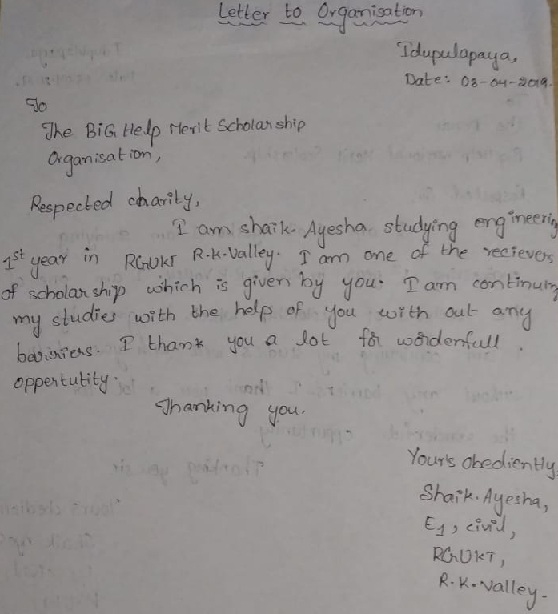 Letter to Organisation
Idupulapaya,
Date: 03-04-2019.
To
The BiG Help Merit Scholarship
Organisation,
Respected charity,
I am shaik. Ayesha studying engineering
1st year in RGUKT R.K.Valley. I am one of the recievers
of scholarship which is given by you. I am continuing
my studies with the help of you with out any
barriers. I thank you a lot for wonderfull
oppertutity.
Thanking you.
Your's Obediently,
Shaik. Ayesha,
E1, civil,
RGUKT,
R.K.Valley.